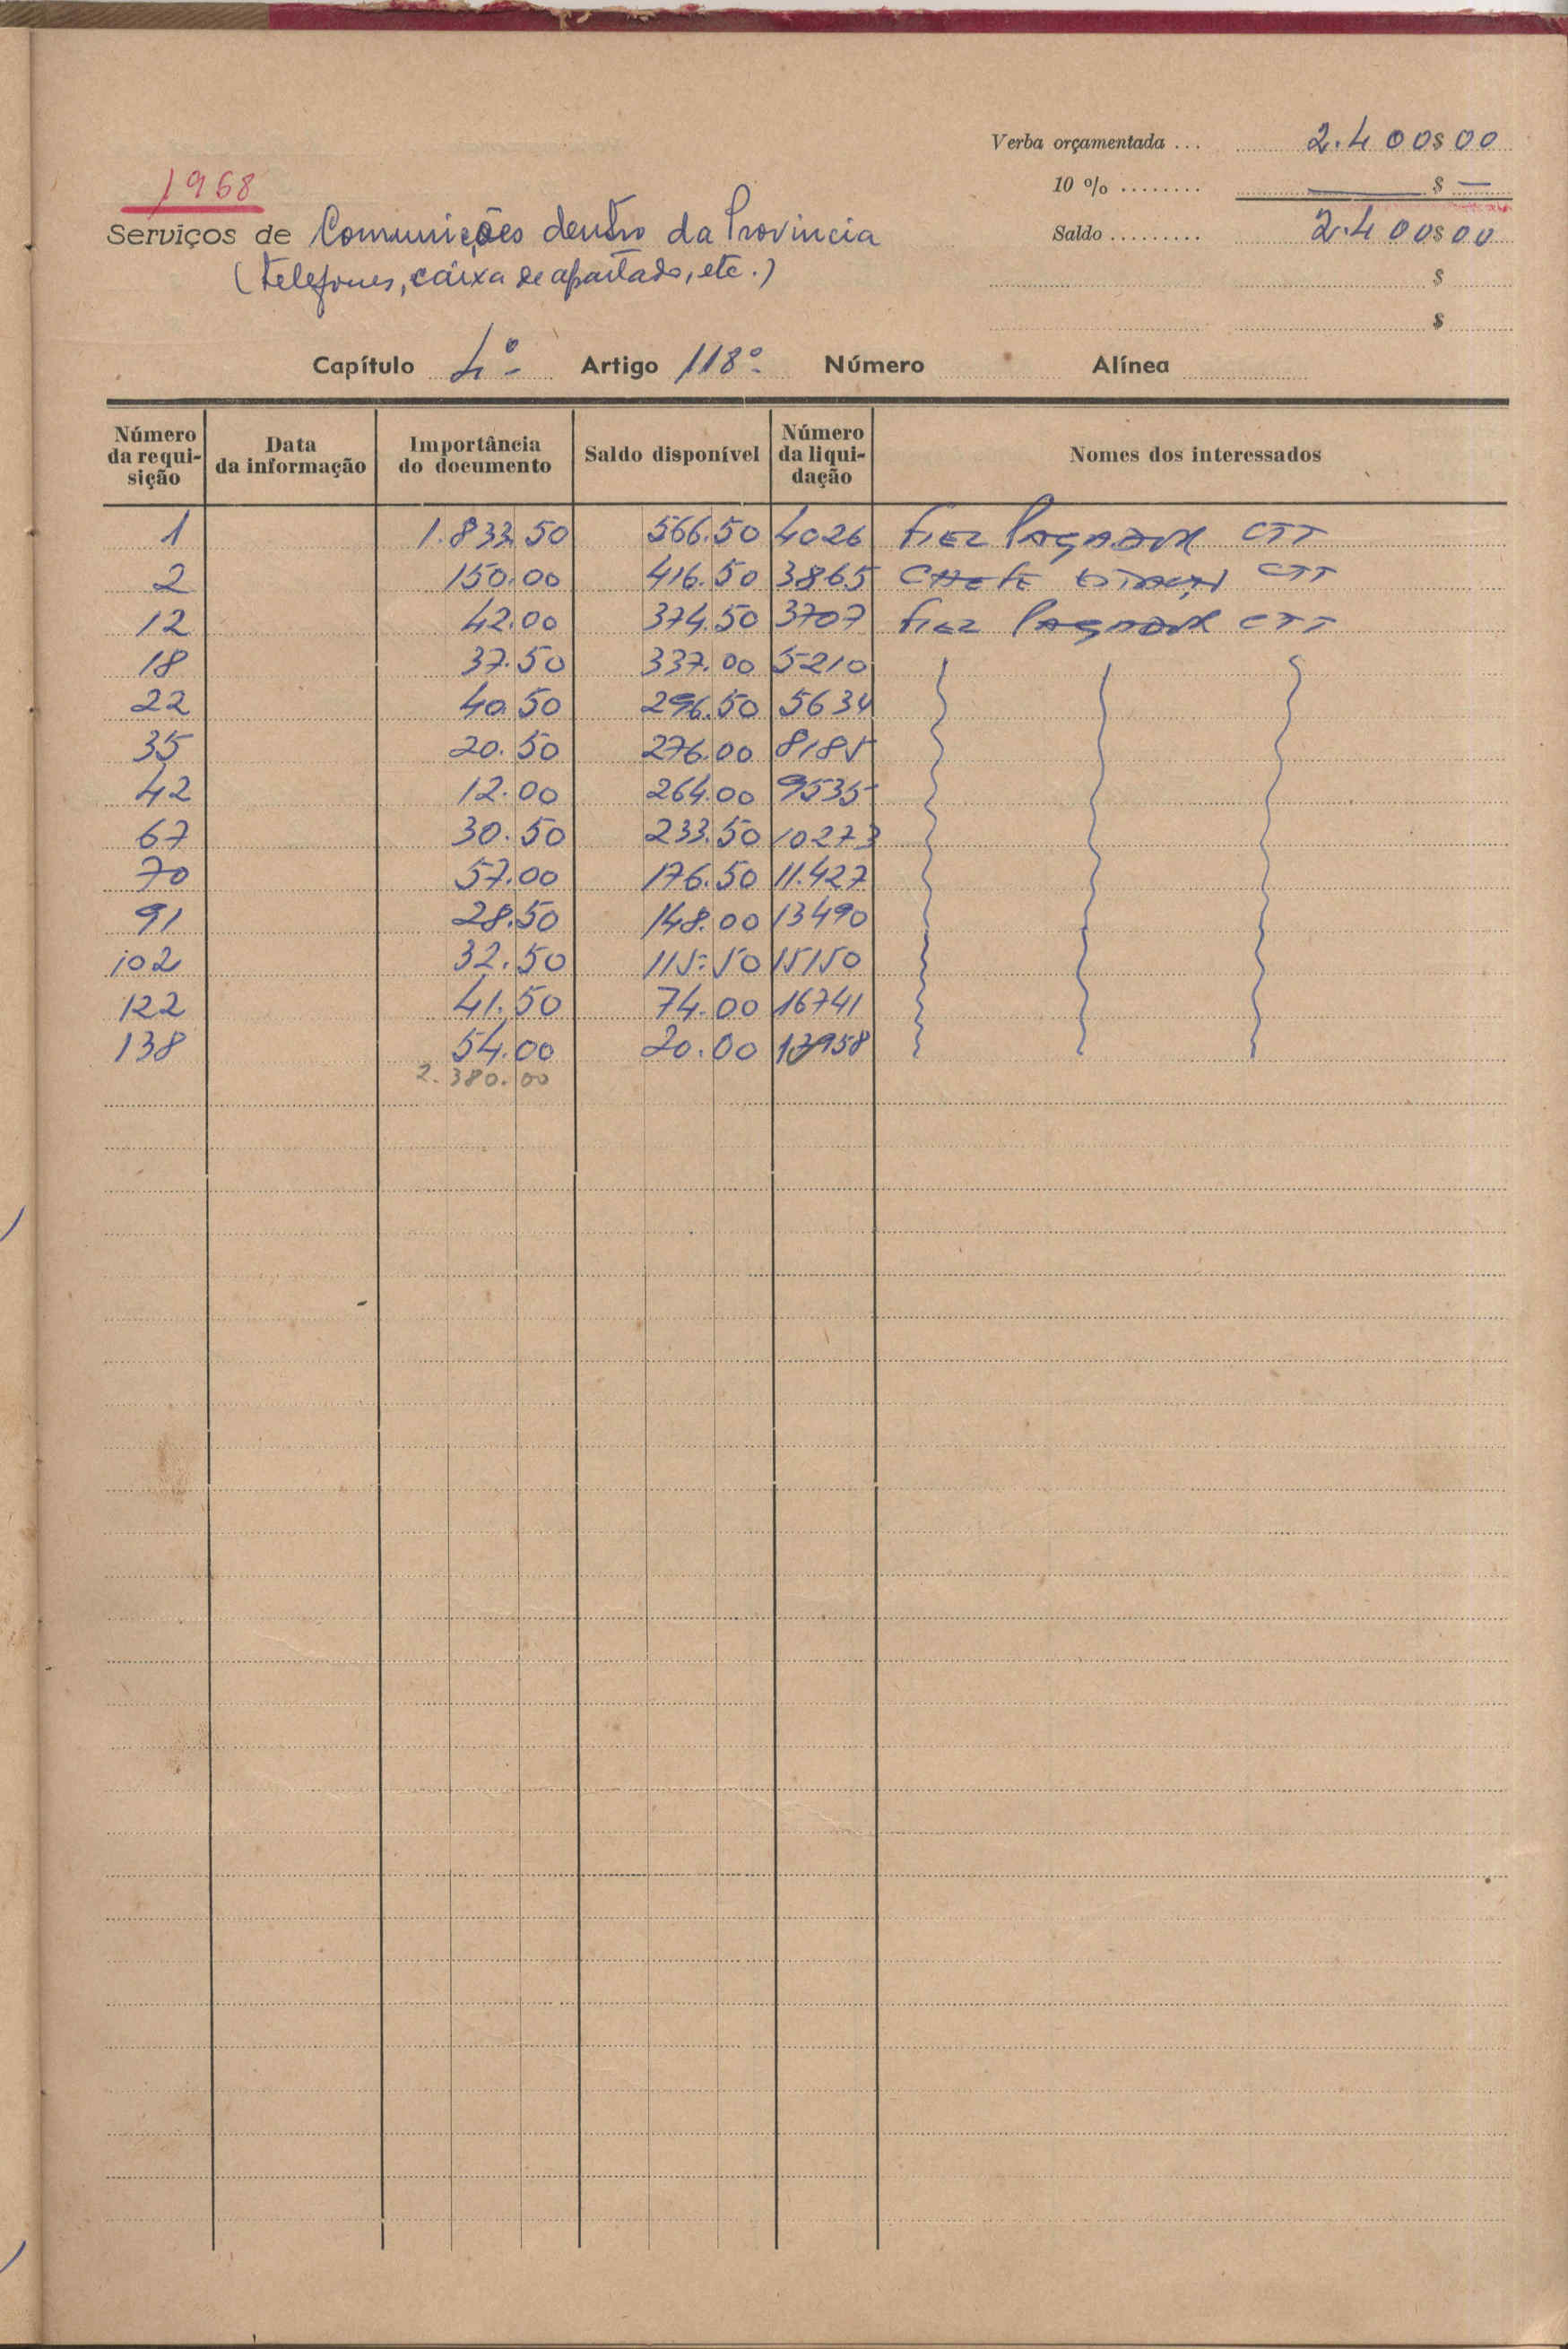 Verba orçamentada ... 2.400$00
1968
10 % ........ — $ —
Serviços de Comunicções dentro da Provincia
Saldo ......... 2.400$00
(telefones, caixa de apartado, etc.)
$
$
Capítulo 4º Artigo 118º Número Alínea
Número da requi-sição Data da informação Importância do documento Saldo disponível Número da liqui-dação Nomes dos interessados
1 1.833.50 566.50 4026 Fiel Pagador CTT
2 150.00 416.50 3865 CHEFE CTT
12 42.00 374.50 3707 Fiel Pagador CTT
18 37.50 337.00 5210
22 40.50 296.50 5634
35 20.50 276.00 8185
42 12.00 264.00 9535
67 30.50 233.50 10273
70 57.00 176.50 11.427
91 28.50 148.00 13490
102 32.50 115.50 15150
122 41.50 74.00 16741
138 54.00 20.00
2.380.00